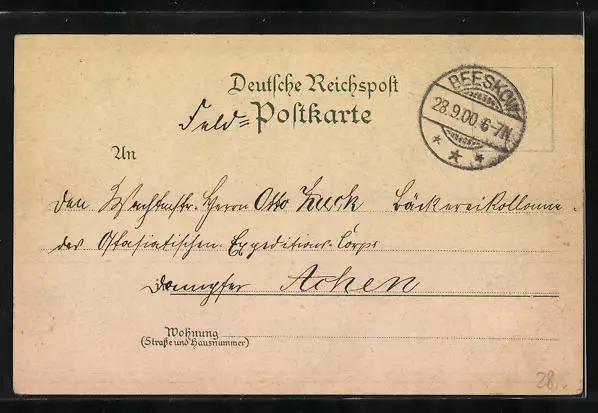 Deutsche Reichspost
Feld= Postkarte
BEESKOW
28.9.00. 6-7N.
An
den Wachtmstr. Herrn Otto Zuck Bäckereikollonne
des Ostasiatischen Expeditions-Corps
Dampfer Achen
Wohnung
(Straße und Hausnummer)
28.